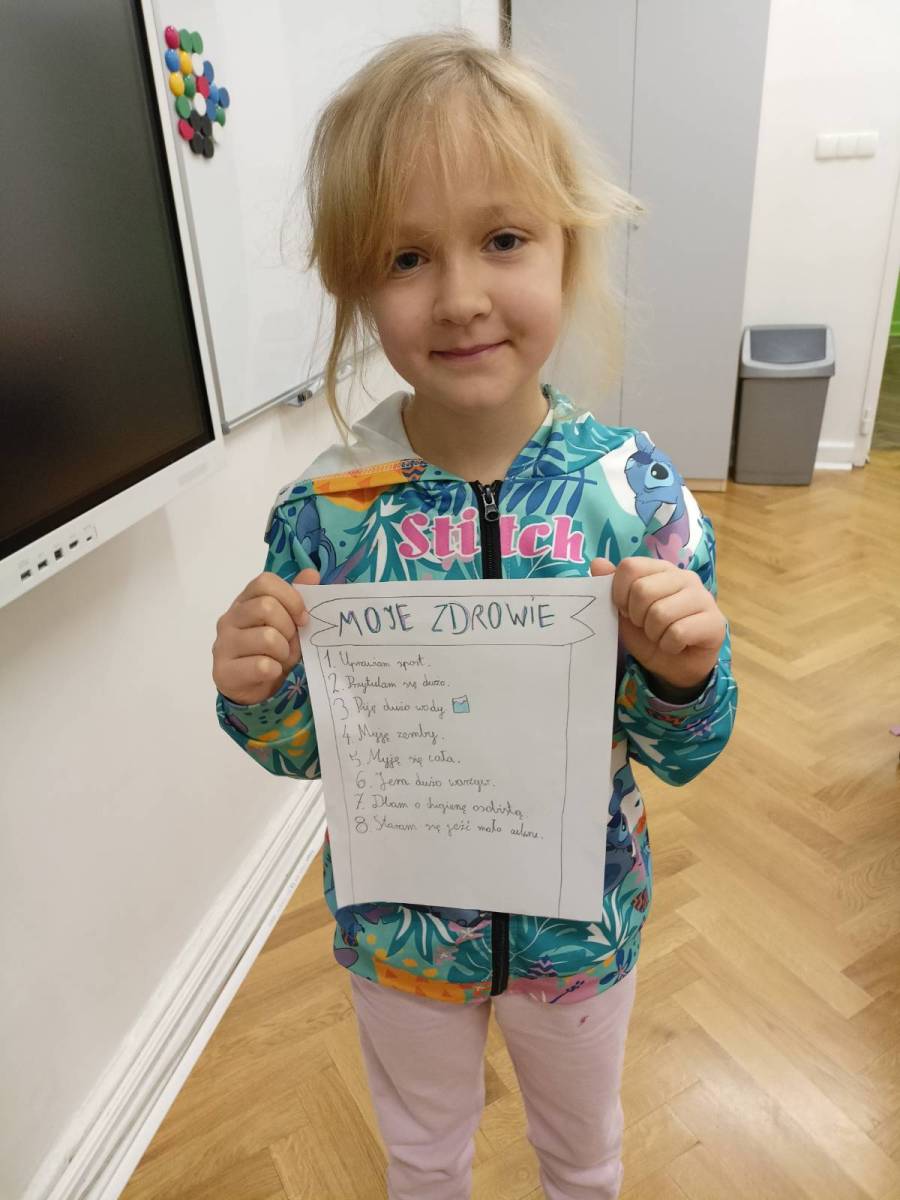 Stitch
MOJE ZDROWIE
1. Uprawiam sport.
2. Przytulam się dużo.
3 Piję dużo wody
4. Myję zemby.
5. Myję się cała.
6. Jem dużo warzyw.
7. Dbam o higienę osobistą.
8 Staram się jeźć mało